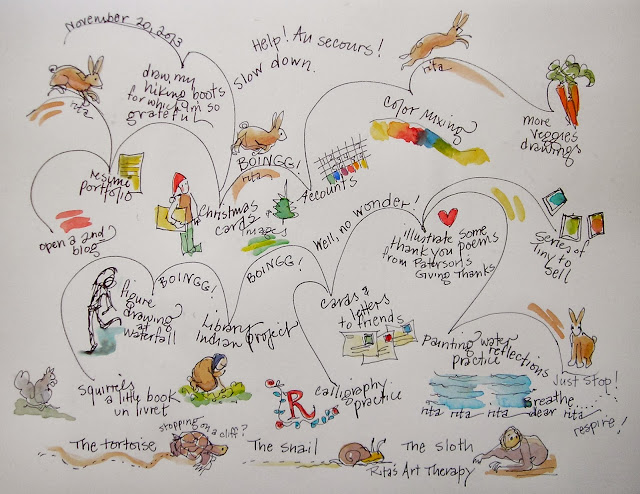 November 20, 2013
Help! Au secours!
Slow down.
draw my
hiking boots
for which I'm so
grateful
rita
rita
color mixing
more
veggies
drawings
BOINGG!
rita
resumé
portfolio
Christmas
cards
maps
Accounts
open a 2nd
blog
Well, no wonder!
illustrate some
thank you poems
from Paterson's
Giving Thanks
Series of
Tiny to
Sell
BOINGG!
BOINGG!
figure
drawing
at
waterfall
Library
Indian project
cards &
letters
to friends
Painting water reflections
practice
Just Stop!
squirrels
a little book
un livret
R
calligraphy
practice
Breathe...
rita rita dear rita
respire!
The tortoise
stopping on a cliff?
The snail
The sloth
Rita's Art Therapy